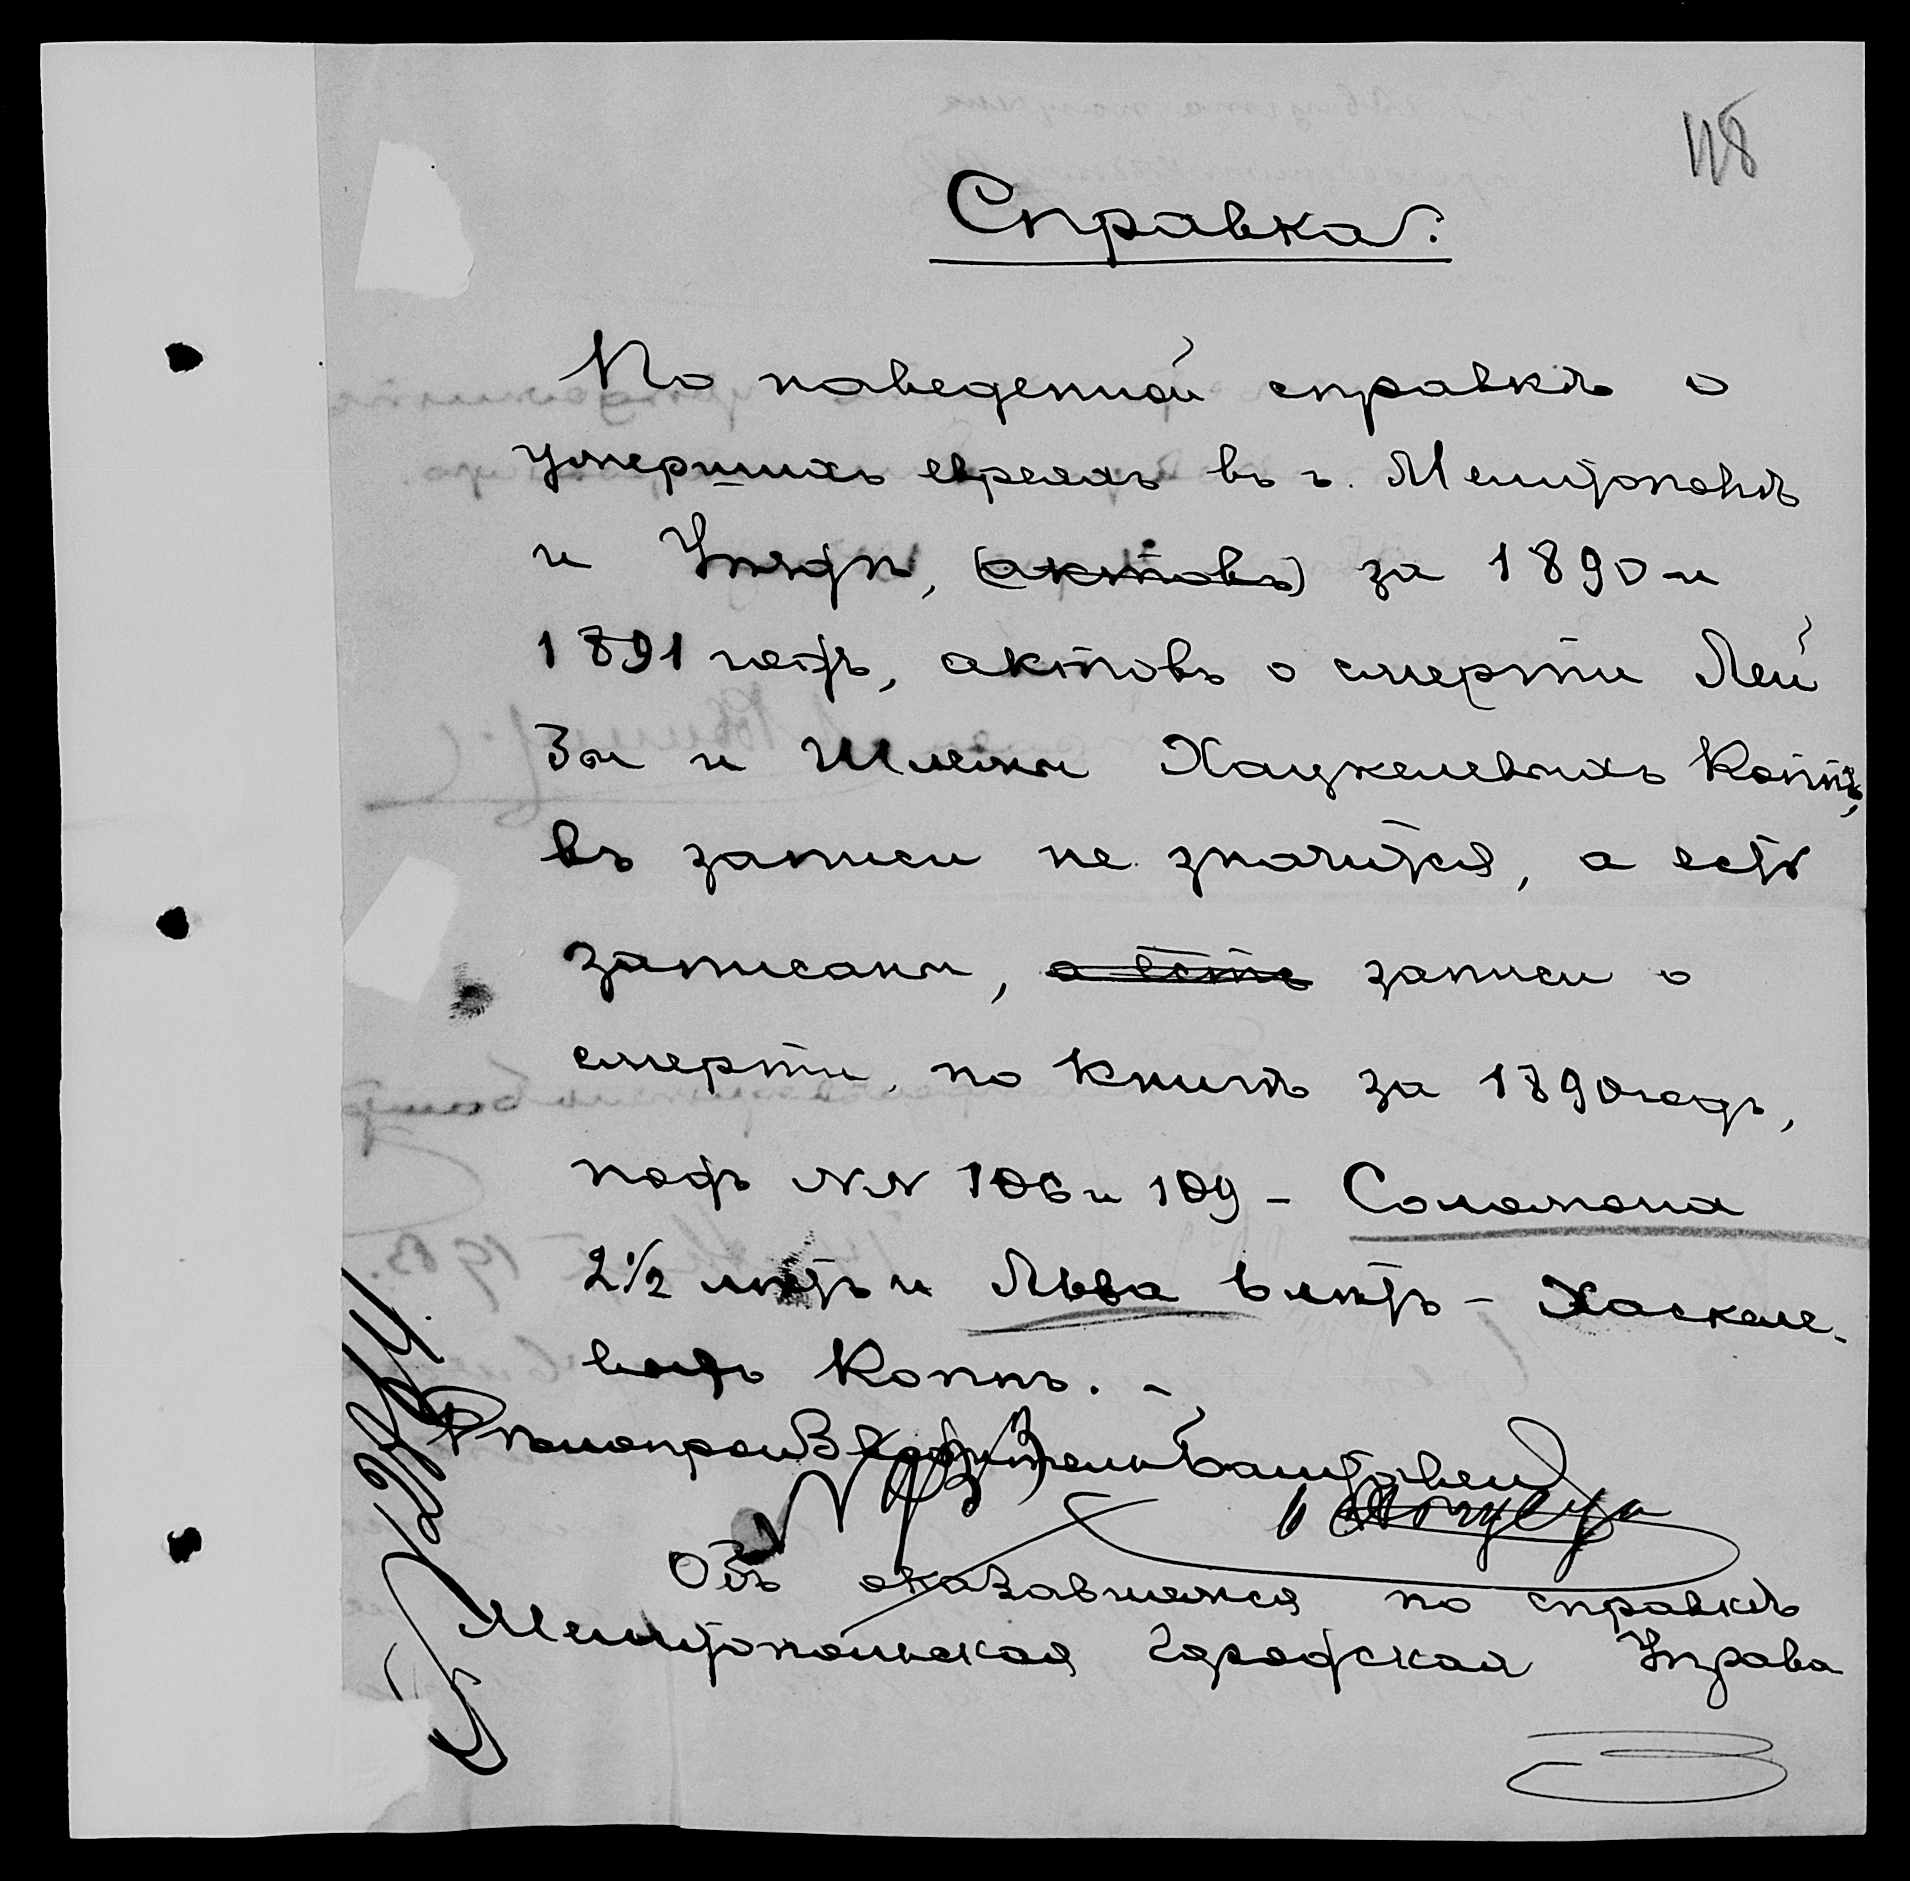 118
Справка:
По наведенной справкѣ о
умершихъ евреяхъ въ г. Мелитополѣ
и Уѣздѣ, (актовъ) за 1890 и
1891 годъ, актовъ о смерти Лей
Зы и Шлемы Хацкелевыхъ Коппъ,
въ записи не значится, а есть
записаны, а есть записи о
смерти, по книгѣ за 1890 годъ,
подъ NN 106 и 109 - Соломона
2½ лѣтъ и Льва 6 лѣтъ - Хаскеле-
выхъ Коппъ. -
Дѣлопроизводитель
Объ оказавшемся по справкѣ
Мелитопольская Городская Управа